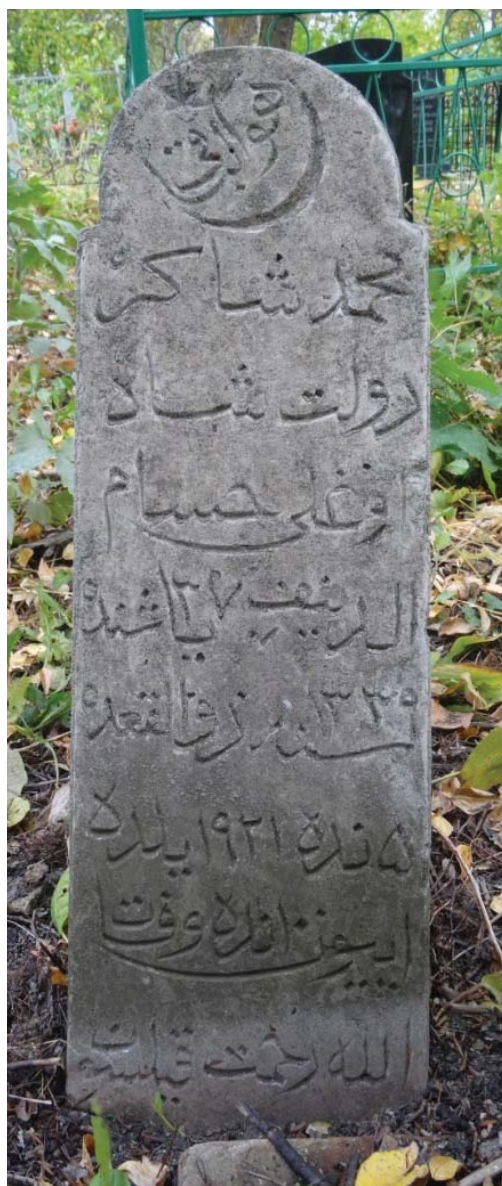 هو الباقی
محمد شاکر
دولت شاه
اوغلی حسام
الدینف ٣٧ یاشنده
١٣٣٩ سنه ذوالقعده
۵ نده ١٩٢١ یلده
اییون ١٠ نده وفات
الله رحمت قیلسون